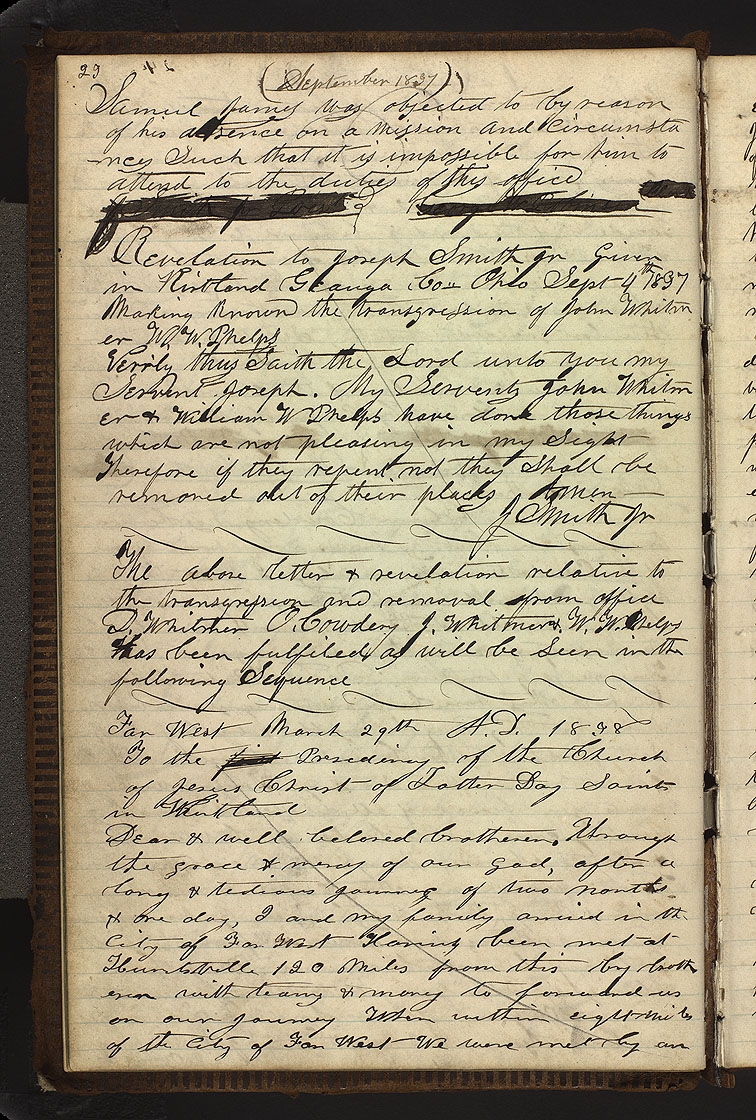 23
(September 1837)
Samuel James was objected to by reason
of his absence on a mission and circumsta
-nces Such that it is impossible for him to
attend to the duties of this office
Revelation to Joseph Smith Jr Given
in Kirtland Geauga Co. Ohio Sept 4th 1837
Making Known the transgression of John Whitm
er W. W. Phelps
Verrily thus Saith the Lord unto you my
Servent Joseph. My Servents John Whitm
er & William W Phelps have done those things
which are not pleasing in my Sight
Therefore if they repent not they Shall be
removed out of their places Amen—
J Smith Jr
The above letter & revelation relative to
the transgression and removal from office
D. Whitmer O. Cowdery J. Whitmer & W. W. Phelps
has been fulfiled as will be Seen in the
following Sequence
Far West March 29th A. D. 1838
To the first Presedincy of the Church
of Jesus Christ of Latter Day Saints
in Kirtland
Dear & well beloved brotheren. Through
the grace & mercy of our God, after a
long & tedious journey of two months
& one day, I and my family arrived in the
City of Far West Having been met at
Huntsville 120 Miles from this by broth
eren with teams & money to forward us
on our journey When within eight miles
of the City of Far West We were met by an